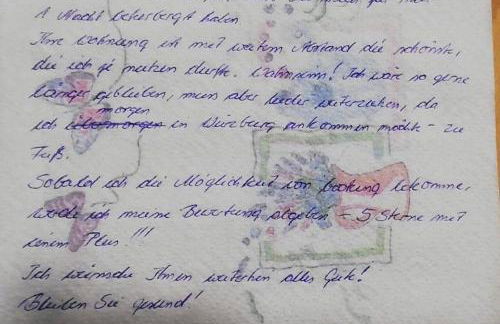 1 Nacht beherbergt haben.
Ihre Wohnung ist mit weitem Abstand die schönste,
die ich je nutzen durfte. Wahnsinn! Ich wäre so gerne
länger geblieben, muss aber leider weiterziehen, da
morgen
ich übermorgen in Würzburg ankommen möchte - zu
Fuß.
Sobald ich die Möglichkeit von booking bekomme,
werde ich meine Bewertung abgeben - 5 Sterne mit
einem Plus!!!
Ich wünsche Ihnen weiterhin alles Gute!
Bleiben Sie gesund!